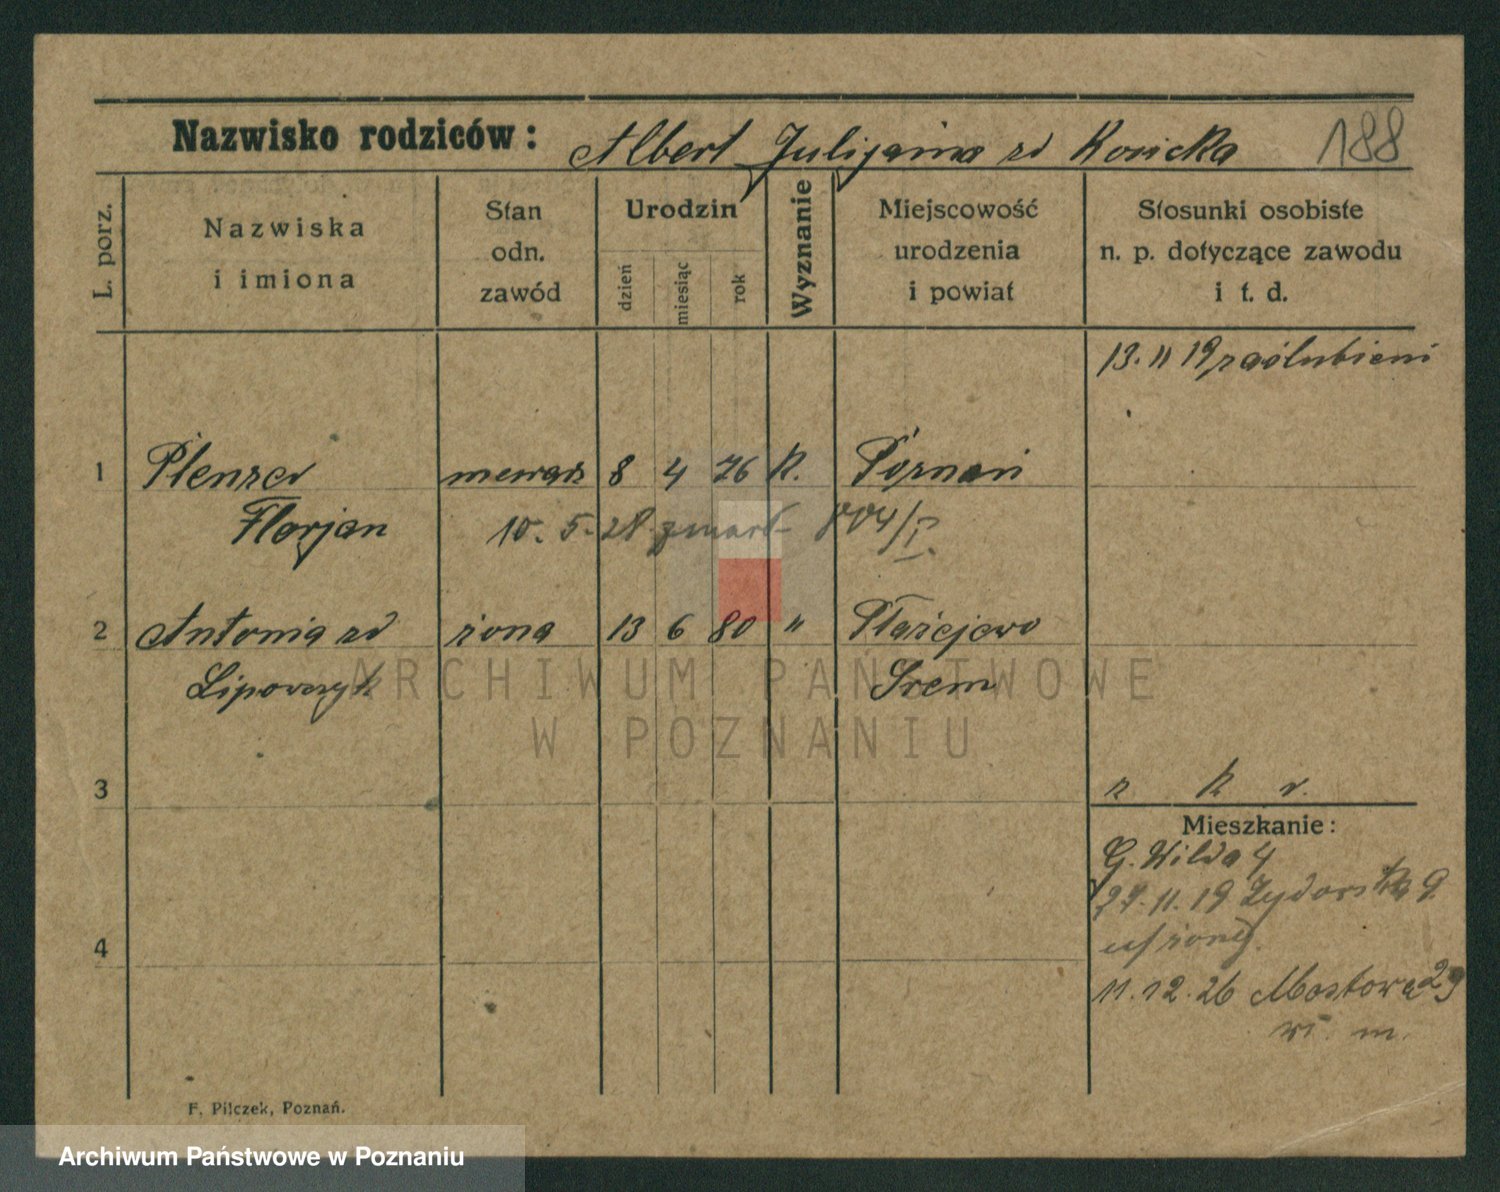 Nazwisko rodziców: Albert Julijanna zd Kosicka 188
L. porz.
Nazwiska i imiona
Stan odn. zawód
Urodzin
dzień miesiąc rok
Wyznanie
Miejscowość urodzenia i powiat
Stosunki osobiste n. p. dotyczące zawodu i t. d.
13. 11 19 zaślubieni
1 8 4 76 k. Poznań
Florjan 10. 5. 28 zmarł 804/I.
2 Antonia zd żona 13 6 80 "
Lipowczyk Śrem
3
r k r.
Mieszkanie:
G. Wilda 4
27. 11. 19 Żydowska 9
4
11. 12. 26 Mostowa 29
wł. m.
F. Pilczek, Poznań.
ARCHIWUM PAŃSTWOWE
W POZNANIU
Archiwum Państwowe w Poznaniu